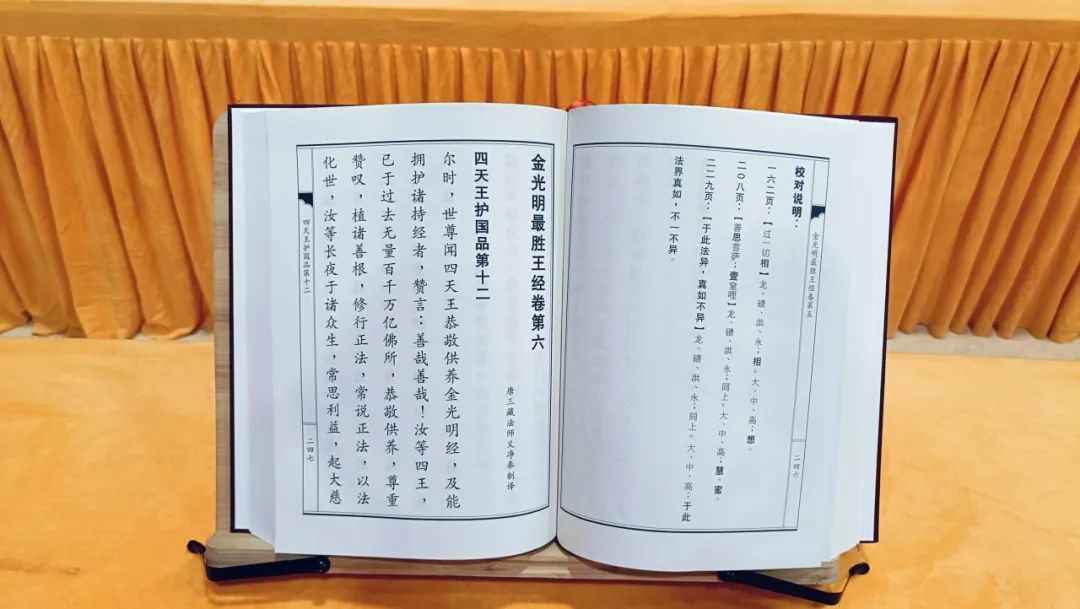 金光明最胜王经卷第五
二四六
校对说明：
一六二页：【过一切相】龙、碛、洪、永；相。大、中、高；想。
二〇八页：【善思菩萨；壹窒哩】龙、碛、洪、永；同上。大、中、高；慧、蜜。
二二九页：【于此法异，真如不异】龙、碛、洪、永；同上。大、中、高；于此
法界真如，不一不异。
金光明最胜王经卷第六
唐三藏法师义净奉制译
四天王护国品第十二
尔时，世尊闻四天王恭敬供养金光明经，及能
拥护诸持经者，赞言：善哉善哉！汝等四王，
已于过去无量百千万亿佛所，恭敬供养，尊重
赞叹，植诸善根，修行正法，常说正法，以法
化世，汝等长夜于诸众生，常思利益，起大慈
四天王护国品第十二
二四七